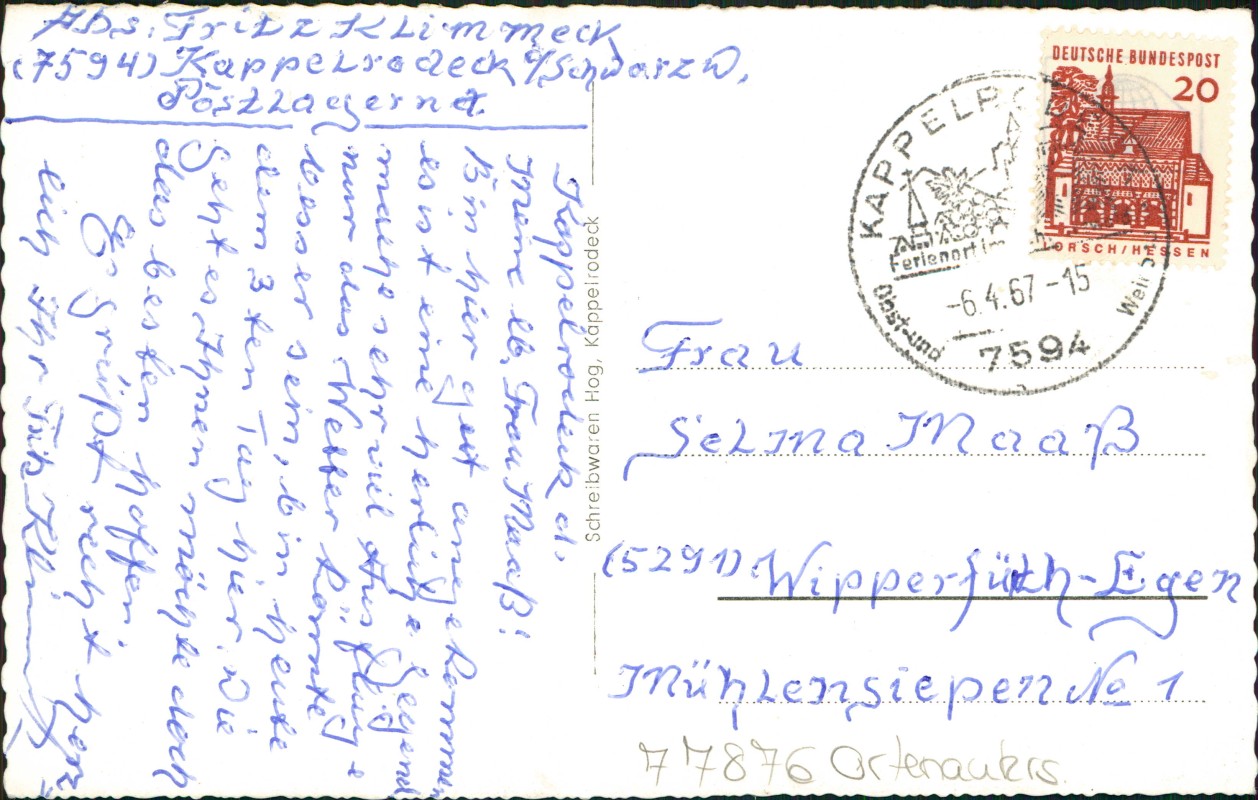 Abs: Fritz Klimmeck
(7594) Kappelrodeck i/Schwarzw,
Postlagernd.
Kappelrodeck d.
Meine lb. Frau Maaß!
Bin hier gut angekommen
es ist eine herliche Gegend
mache sehr viel Ausflüge
nur das Wetter könnte
besser sein, bin heute
dem 3ten Tag hier. Wie
geht es Ihnen möchte doch
das besten hoffen
Es grüßt recht herz
lich Ihr Fritz Klimmeck
Schreibwaren Hog, Kappelrodeck
DEUTSCHE BUNDESPOST
20
LORSCH/HESSEN
KAPPELRODECK
Ferienort im
Obst- und
Wein
-6.4.67-15
7594
Frau
Selma Maaß
(5291) Wipperfüth-Egen
Mühlensiepen No 1
77876 Ortenaukrs.